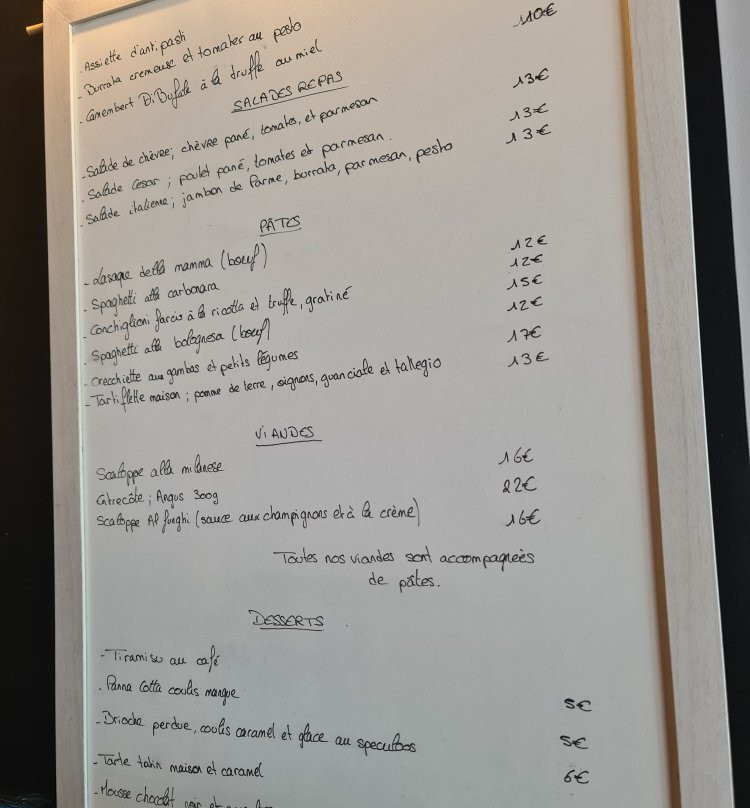 - Assiette d'antipasti
- Burrata cremeuse et tomates au pesto 110€
- Camembert Di Bufala à la truffe au miel
SALADES REPAS
13€
- Salade de chèvre; chèvre pané, tomates, et parmesan 13€
- Salade César; poulet pané, tomates et parmesan. 13€
- Salade italienne; jambon de Parme, burrata, parmesan, pesto
PÂTES
- Lasagne della mamma (boeuf) 12€
- Spaghetti alla carbonara 12€
- Conchiglioni farcis à la ricotta et truffe, gratiné 15€
- Spaghetti alla bolognesa (boeuf) 12€
- Orecchiette aux gambas et petits légumes 17€
- Tartiflette maison; pomme de terre, oignons, guanciale et tallegio 13€
VIANDES
Scaloppe alla milanese 16€
Entrecôte; Angus 300g 22€
Scaloppe Al funghi (sauce aux champignons et à la crème) 16€
Toutes nos viandes sont accompagnées
de pâtes.
DESSERTS
- Tiramisu au café
- Panna Cotta coulis mangue 5€
- Brioche perdue, coulis caramel et glace au speculoos 5€
- Tarte tatin maison et caramel 6€
- Mousse chocolat noir et